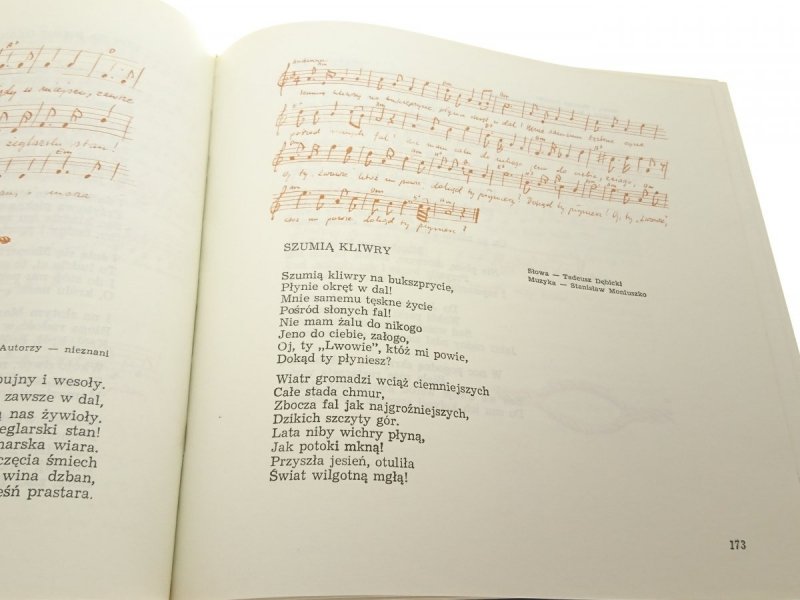 żeglarski stan!
Autorzy — nieznani
bujny i wesoły.
zawsze w dal,
nas żywioły.
eglarski stan!
narska wiara.
częcia śmiech
wina dzban,
eśń prastara.
Andantino
Szumią kliwry na bukszprycie płynie okręt w dal! Mnie samemu tęskne życie
pośród słonych fal! Nie mam żalu do nikogo jeno do ciebie, załogo,
Oj, ty "Lwowie" któż mi powie dokąd ty płyniesz? Dokąd ty płyniesz? Oj, ty "Lwowie",
któż mi powie dokąd ty płyniesz?
SZUMIĄ KLIWRY
Słowa — Tadeusz Dębicki
Muzyka — Stanisław Moniuszko
Szumią kliwry na bukszprycie,
Płynie okręt w dal!
Mnie samemu tęskne życie
Pośród słonych fal!
Nie mam żalu do nikogo
Jeno do ciebie, załogo,
Oj, ty „Lwowie", któż mi powie,
Dokąd ty płyniesz?
Wiatr gromadzi wciąż ciemniejszych
Całe stada chmur,
Zbocza fal jak najgroźniejszych,
Dzikich szczyty gór.
Lata niby wichry płyną,
Jak potoki mkną!
Przyszła jesień, otuliła
Świat wilgotną mgłą!
173